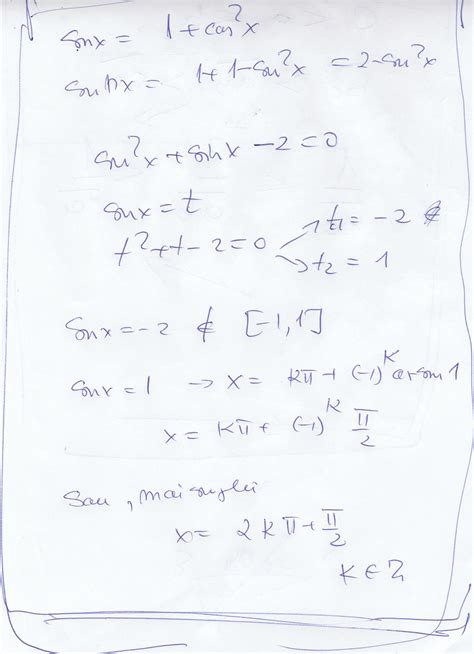 sin x = 1 + cos²x
sin x = 1 + 1 - sin²x = 2 - sin²x
sin²x + sin x - 2 = 0
sin x = t
t² + t - 2 = 0 → t₁ = -2 ∉
→ t₂ = 1
sin x = -2 ∉ [-1, 1]
sin x = 1 → x = kπ + (-1)^k arcsin 1
x = kπ + (-1)^k π/2
Sau, mai simplu
x = 2kπ + π/2
k ∈ Z